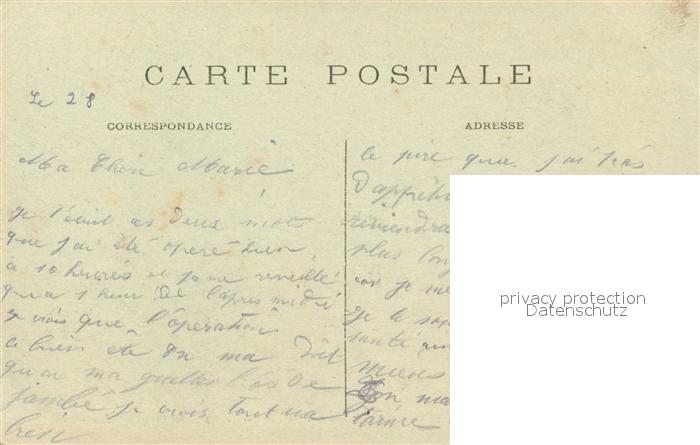 CARTE POSTALE
Le 28
CORRESPONDANCE
ADRESSE
Ma Chère Marie
je t'écrit ces deux mots
que j'ai été opéré hier
à 10 heures et je me réveillé
qu'a 1 heur de l'après midi
je crois que l'opération
a bien été on ma dit
qu'on ma gratter l'os de
jambe je crois tout ira
bien
le pire que j'ai très
d'appéti
reviendra
plus long
car je me
je le
santé
mieux
on ma
privacy protection
Datenschutz